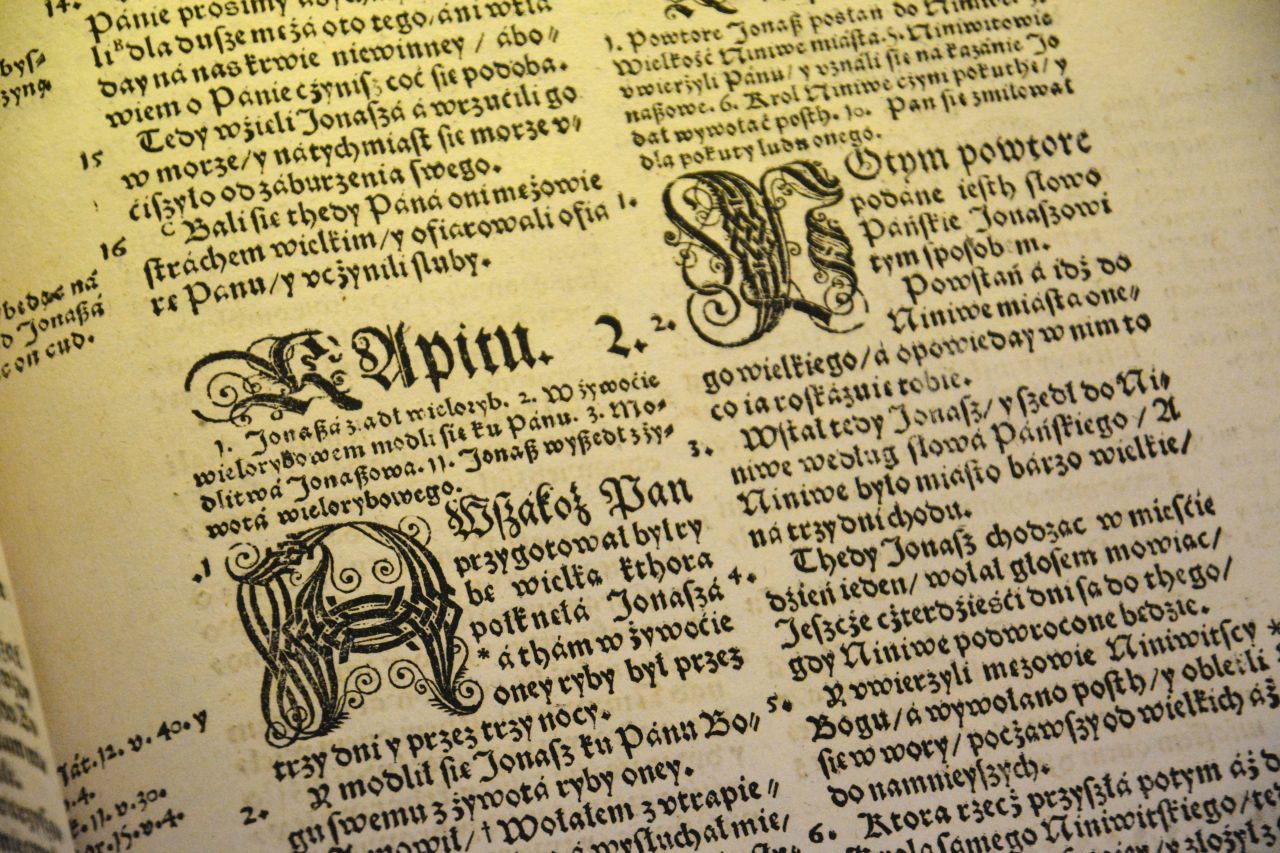 14.
Pánie prosimy
li dla dusze mężá oto tego/ áni wtla
day ná nas krwie niewinney / ábo⸗
wiem o Pánie cżynisz coć się podoba.
15 Tedy wżięli Jonaszá á wrzućili go
w morze/ y nátychmiast się morze v⸗
ćiszyło od záburzenia swego.
16 Bali się thedy Páná oni mężowie
stráchem wielkim/ y ofiarowali ofia
rę Pánu/ y vcżynili śluby.
będąc ná
d Jonaszá
on cud.
KApitu. 2.
1. Jonaßá ziadł wieloryb. 2. W żywoćie
wielorybowem modli się ku Pánu. 3. Mo⸗
dlitwá Jonaßowa. 11. Jonaß wyßedł z ży⸗
wotá wielorybowego.
.1 AWszákoż Pan
przygotował był ry
bę wielką kthora
połknęłá Jonaszá
* á thám w żywoćie
oney ryby był przez
trzy dni y przez trzy nocy.
2. Y modlił się Jonasz ku Pánu Bo⸗
gu swemu z żywotá ryby oney.
mowił/ Wołałem z vtrapie⸗
wysłuchał mie/
Mát. 12. v. 40. y
11. v. 30.
15. v. 4.
1. Powtore Jonaß posłan do Niniwe
Wielkość Niniwe miástá. 5. Niniwitowie
vwierżyli Pánu/ y vználi się ná kazánie Jo
naßowe. 6. Krol Niniwe czyni pokuthę/ y
dał wywołáć posth. 10. Pan się zmiłował
dla pokuty ludu onego.
1. POtym powtore
podáne iesth słowo
Páńskie Jonaszowi
tym sposobem.
2. Powstań á idź do
Niniwe miástá one⸗
go wielkiego/ á opowieday w nim to
co ia roskázuię tobie.
3. Wstał tedy Jonasz/ y szedł do Ni⸗
niwe według słowá Páńskiego / A
Niniwe było miásto bárzo wielkie/
ná trzy dni chodu.
4. Thedy Jonasz chodząc w mieśćie
dzień ieden/ wołał głosem mowiąc/
Jeszcże cżterdżieśći dni są do thego/
gdy Niniwe podwrocone będzie.
5. Y vwierzyli mężowie Niniwitscy *
Bogu/ á wywołano posth/ y oblekli
się w wory/ pocżąwszy od wielkich áż
do namnieyszych.
6. Ktora rzecż przyszłá potym áż d
sámego Niniwitskiego/
y złożył z